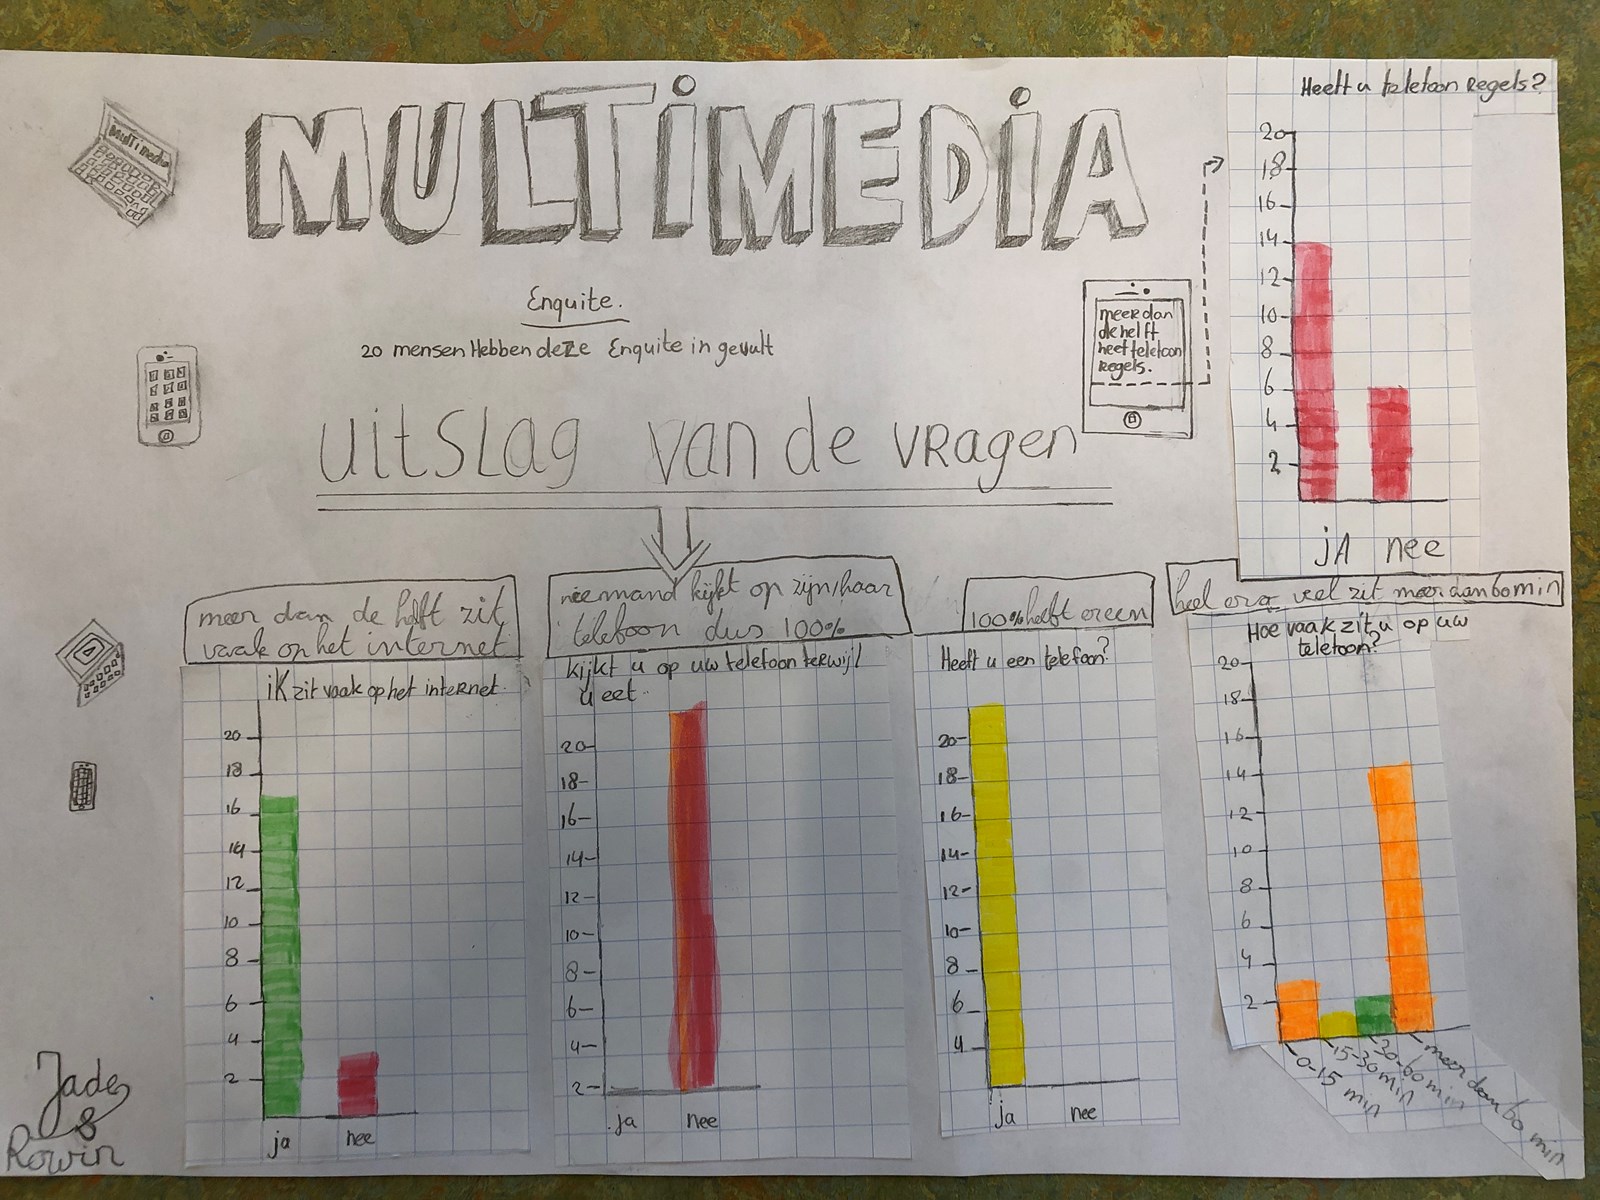 Multimedia
MULTiMEDiA
Enquite.
20 mensen Hebben deze Enquite in gevult
uitslag van de vragen
meer dan
de helft
heet telefoon
regels.
Heeft u telefoon Regels?
20
18
16
14
12
10
8
6
4
2
jA nee
meer dan de helft zit
vaak op het internet
iK zit vaak op het internet.
20
18
16
14
12
10
8
6
4
2
ja nee
niemand kijkt op zijn/haar
telefoon dus 100%
kijkt u op uw telefoon terwijl
u eet
20
18
16
14
12
10
8
6
4
2
ja nee
100% heft er een
Heeft u een telefoon?
20
18
16
14
12
10
8
6
4
ja nee
heel erg veel zit meer dan 60 min
Hoe vaak zit u op uw
telefoon?
20
18
16
14
12
10
8
6
4
2
0-15 min
15-30 min
30-60 min
meer dan 60 min
Jade
&
Rowin